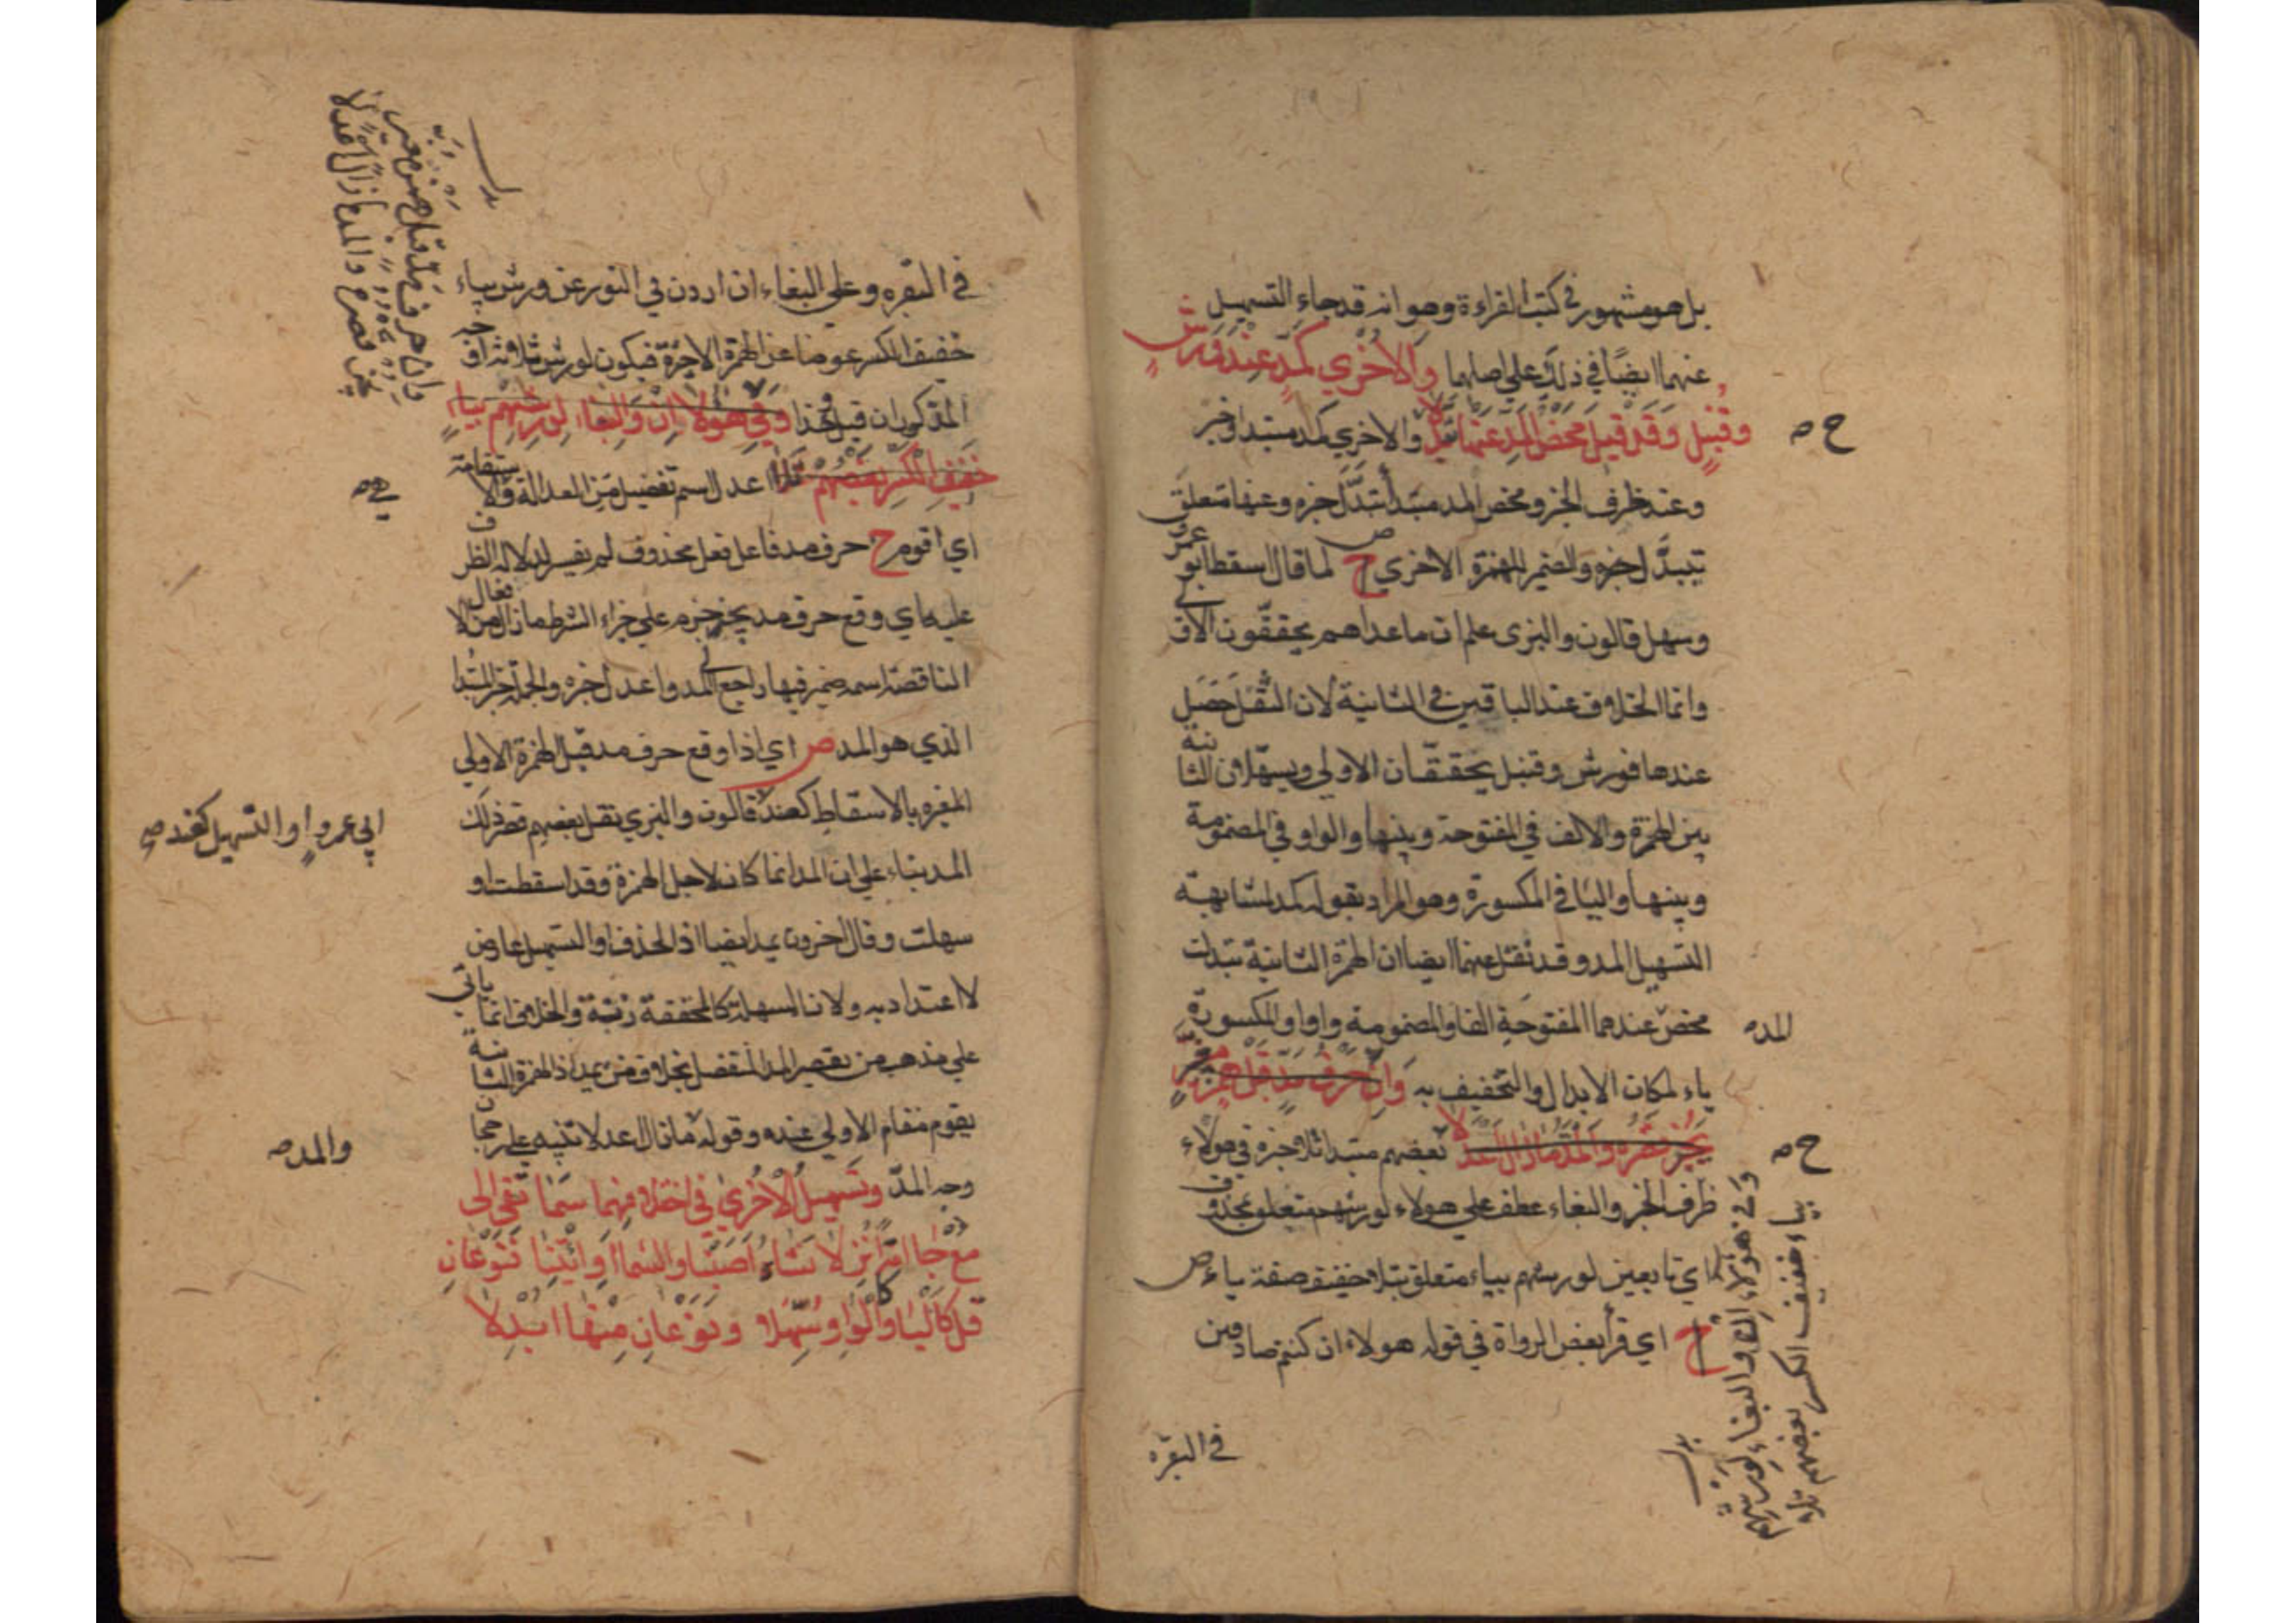 بل هو مشهور في كتب القراءة وهو انه قد جاء التسهيل
عنهما ايضًا في ذلك علي اصلهما والاخري كمد عند ورش
وقنبل وقد قيل محض المد عنها تبدلا والاخري كمد مبتدا وخبر
ح صـ
وعند ظرف الخبر ومحض المد مبتدأ تبدَّل خبره وعنها متعلق
تبدَّل خبره والضمير للهمزة الاخري ح لما قال اسقط ابو عمرو
وسهل قالون والبزي علم ان ما عداهم يحققون الاولي
وانما الخلاف عند الباقين في الثانية لان الثقل حَصَل
عندها فورش وقنبل يحققان الاولي ويسهلان الثانية
بين الهمزة والالف في المفتوحة وبينها والواو في المضمومة
وبينها والياء في المكسورة وهو المراد بقوله كمد لمشابهة
التسهيل المد وقد نقل عنهما ايضا ان الهمزة الثانية تبدلت
محض عندهما المفتوحة الفا والمضمومة واوا والمكسورة
المد صـ
ياء لمكان الابدال والتخفيف به وان حرف مد قبل همز مغير
يجز قصره والمد ما زال اعدلا بعضهم مبتدا تلا خبره في هولاء
ح صـ
ظرف الخبر والبغاء عطف علي هولاء لورشهم متعلق بمحذوف
اي تابعين لورشهم بياء متعلق بتلا خفيف صفة ياء ص
ح اي قرأ بعض الرواة في قوله هولاء ان كنتم صادقين
وفي هؤلاء ان والبغاء لورشهم
بياء خفيف الكسر بعضهم تلا
بدل
في البقره
في البقره وعلي البغاء ان اردن في النور عن ورش بياء
خفيف الكسر عوضا عن الهمزة الاخيرة فيكون لورش ثلاثة اوجه
المذكوران قبل وهذا وفي هؤلا ان والبغاء لورشهم بياء
خفيف الكسر بعضهم تلا اعدل اسم تفضيل من العدالة والاستقامة
اي اقوم ح حرف مد فاعل فعل محذوف لم يفسر لدلالة الظرف
عليه اي وقع حرف مد يجز جزم علي جزاء الشرط ما زال من الافعال
الناقصة اسمه ضمير فيها راجع الي المد واعدل خبره والجملة خبر المبتدا
الذي هو المد ص اي اذا وقع حرف مد قبل الهمزة الاولي
المغيره بالاسقاط كعند قالون والبزي نقل بعضهم قصر ذلك
ابي عمرو او التسهيل كعند صـ
المد بناء علي ان المد انما كان لاجل الهمزة وقد اسقطت او
سهلت وقال اخرون يمد ايضا اذ الحذف او التسهيل عارض
لا اعتداد به ولان المسهلة كالمحققة رتبة والخلاف انما ياتي
علي مذهب من يقصر المد المنفصل بخلاف من يمد اذ الهمزة الثانية
يقوم مقام الاولي عنده وقوله ما زال اعدلا تنبيه علي رجحان
والمد صـ
وجه المدّ وتسهيل الاخري في اختلافهما سما تفئ الى
مع جا امة انزلا نشاء اصبنا والسماء او ائتنا فنوعان
قل كاليا وكالواو سهلا ونوعان منها ابدلا
وان حرف مد قبل همز مغير
يجز قصره والمد ما زال اعدلا
بدل